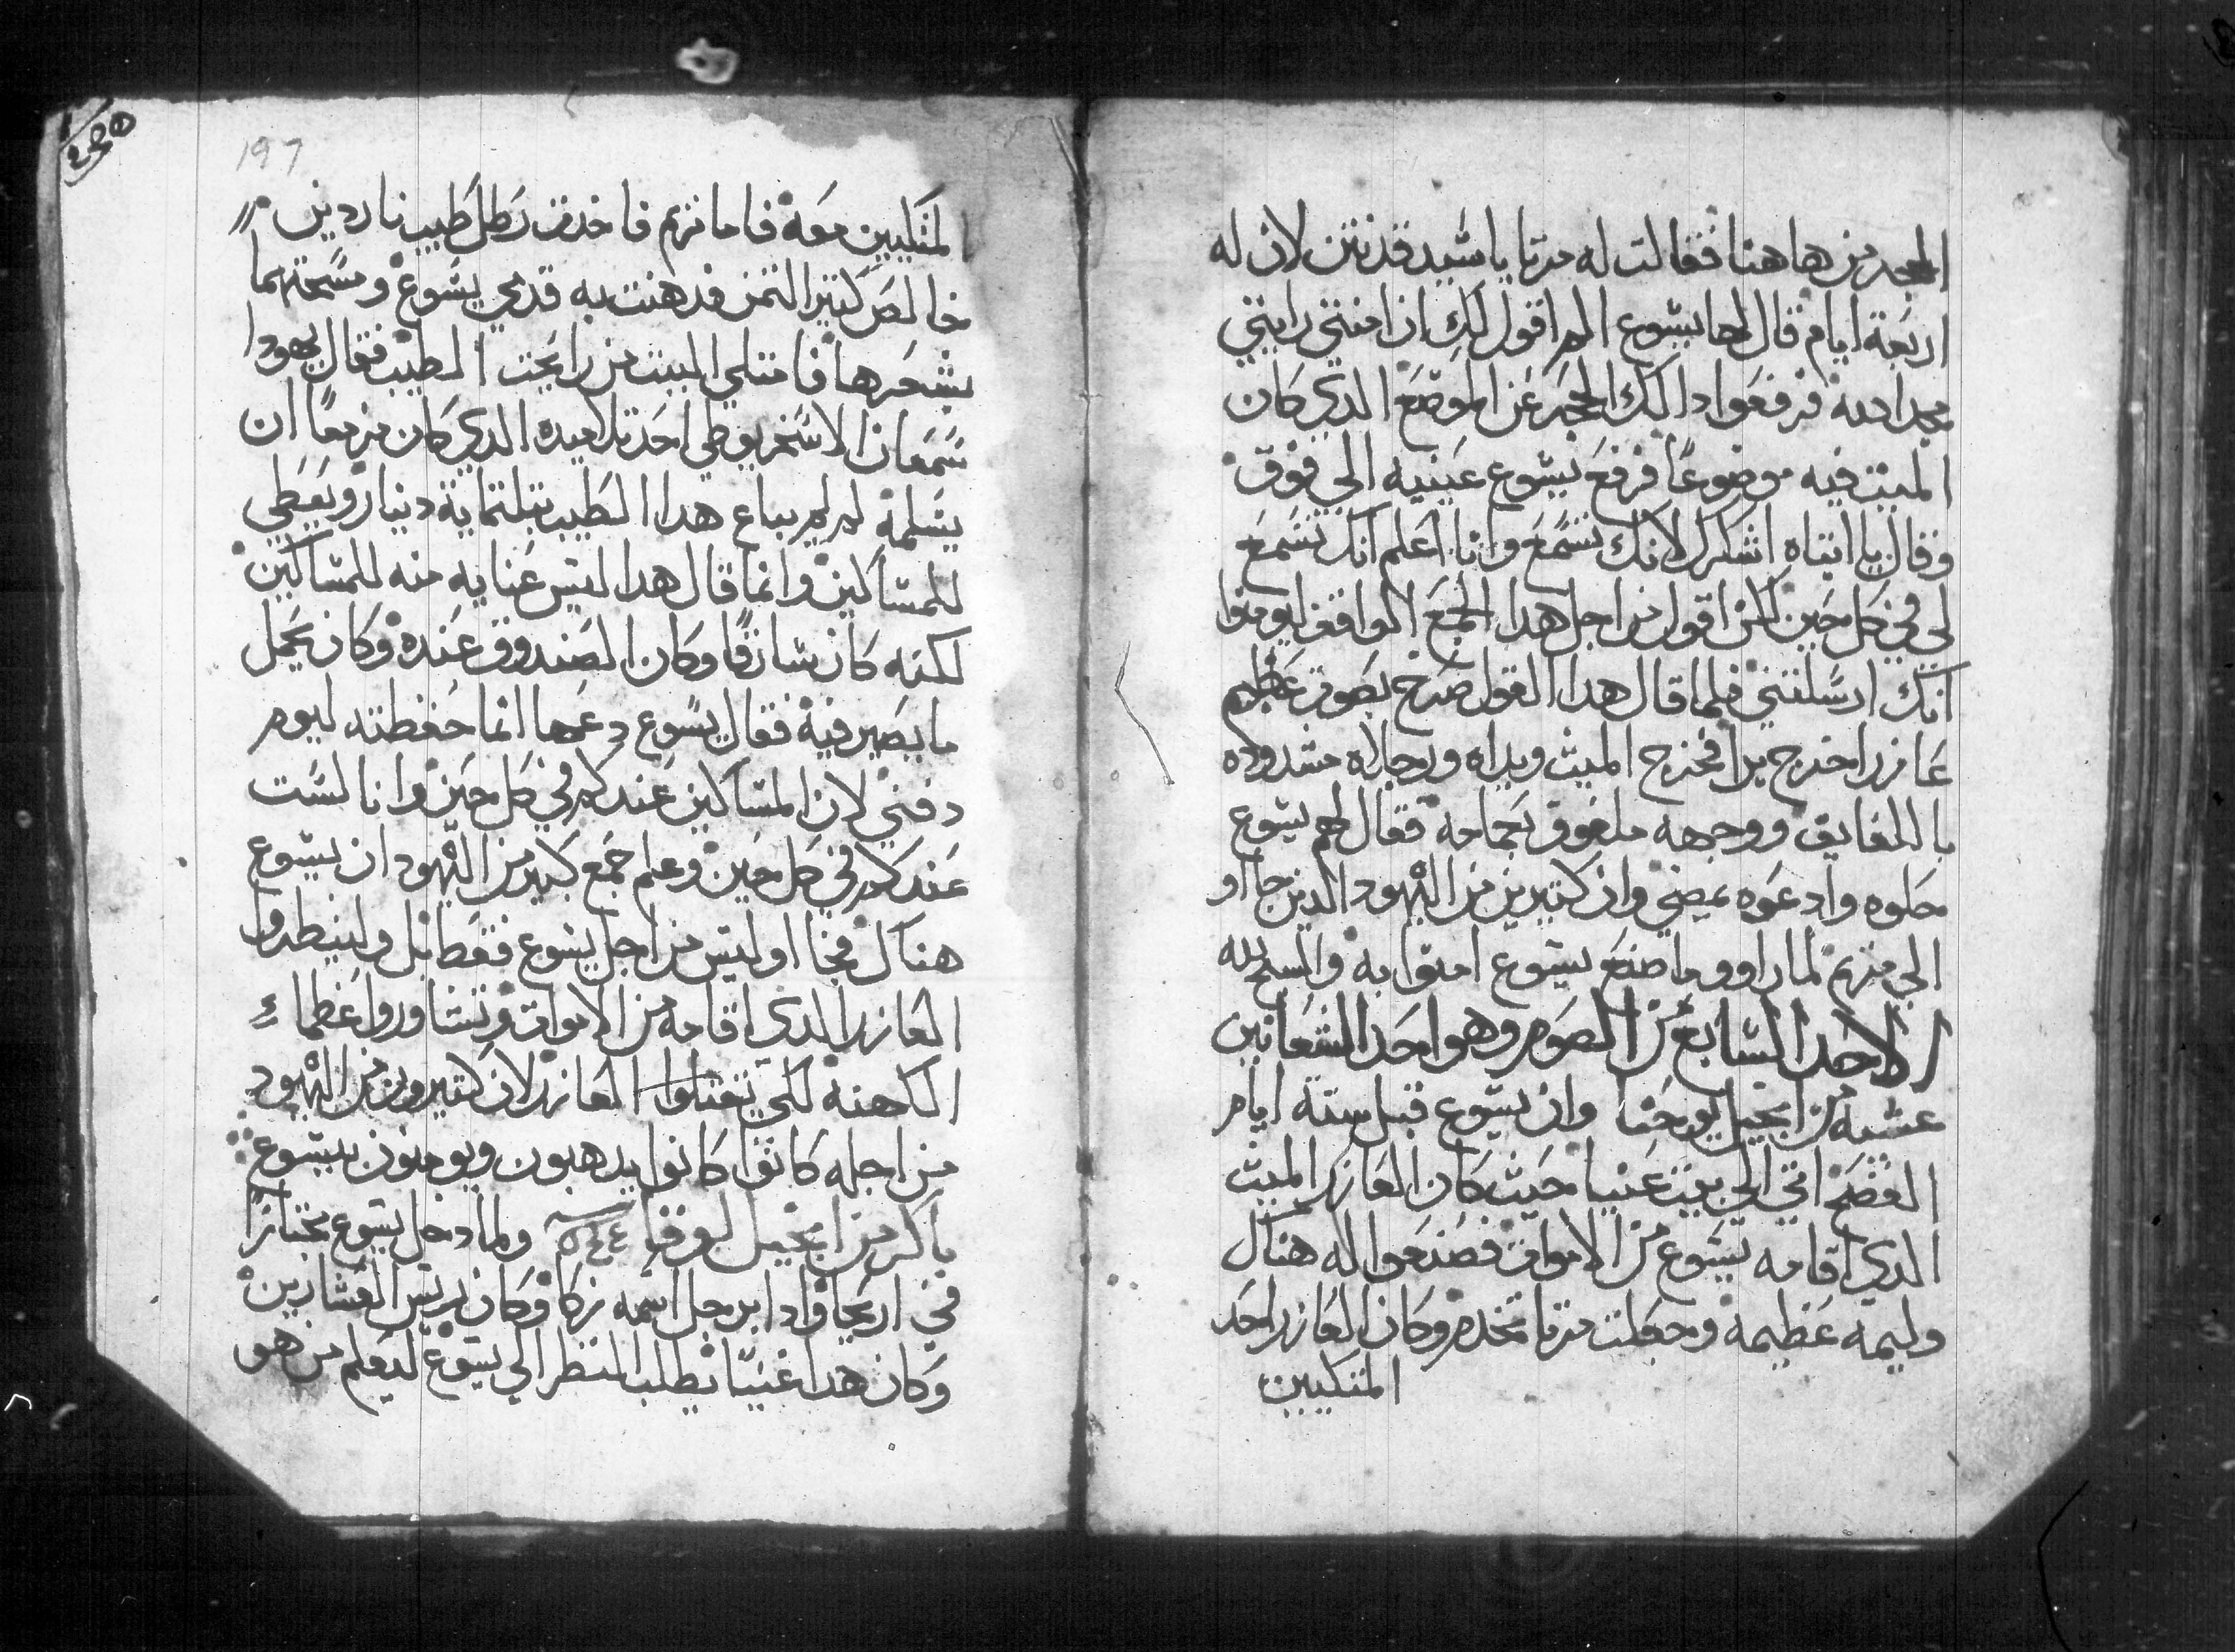 الحجر من هاهنا فقالت له مرتا يا سيد قد نتن لان له
اربعة ايام قال لها يسوع الم اقول لك ان امنتي رايتي
مجد الله فرفعوا دالك الحجر عن الموضع الدي كان
الميت فيه موضوعًا فرفع يسوع عينيه الي فوق
وقال يا ابتاه اشكرك لانك تسمع وانا اعلم انك تسمع
لي في كل حين لكن اقول من اجل هدا الجمع الواقف ليومنوا
انك ارسلتني فلما قال هدا القول صرخ بصوت عظيم
عازر اخرج برا فخرج الميت ويداه ورجلاه مشدوده
باللفايف ووجهه ملفوق بعمامه فقال لهم يسوع
حلوه وادعوه يمضي وان كتيرين من اليهود الدين جااو
الي مريم لما راوو ما صنع يسوع امنوا به والسبح لله
الاحد السابع من الصوم وهو احد الشعانين
عشية من انجيل يوحنا وان يسوع قبل ستة ايام
الفصح اتي الي بيت عنيا حيث كان العازر الميت
الدي اقامه يسوع من الاموات فصنعوا له هناك
وليمه عظيمة وجعلت مرتا تخدم وكان العازر احد
المتكيين
197
المتكيين معه فاما مريم فاخدت رطل طيب ناردين
خالص كتير التمن فدهنت به قدمي يسوع ومسحتهما
بشعرها فامتلي البيت من رايحت الطيب فقال يهودا
سمعان الاسخريوطي احد تلاميده الدي كان مزمعًا ان
يسلمه لم لم يباع هدا الطيب بتلتماية دينار ويعطي
للمساكين وانما قال هدا ليس عنايه منه للمساكين
لكنه كان سارقًا وكان الصندوق عنده وكان يحمل
ما يصير فيه فقال يسوع دعها انما حفظته ليوم
دفني لان المساكين عندكم في كل حين وانا لست
عندكم في كل حين وعلم جمع كبير من اليهود ان يسوع
هناك فجااو ليس من اجل يسوع فقط بل ولينظروا
العازر الدي اقامه من الاموات وتشاوروا عظماء
الكهنه لكي يقتلوا العازر لان كتيرون من اليهود
من اجله كانوا كانوا يدهبون ويومنون بيسوع
باكر من انجيل لوقا ولما دخل يسوع مجتازًا
في اريحا وادا برجل اسمه زكا وكان ريس العشارين
وكان هدا غنيًا يطلب النظر الي يسوع ليعلم من هو